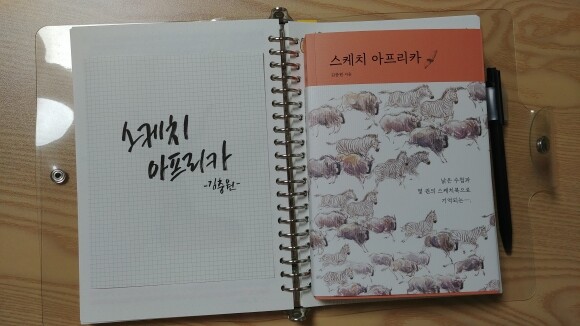 스케치
아프리카
-김충원-
스케치 아프리카
김충원 지음
낡은 수첩과
몇 권의 스케치북으로
기억되는…